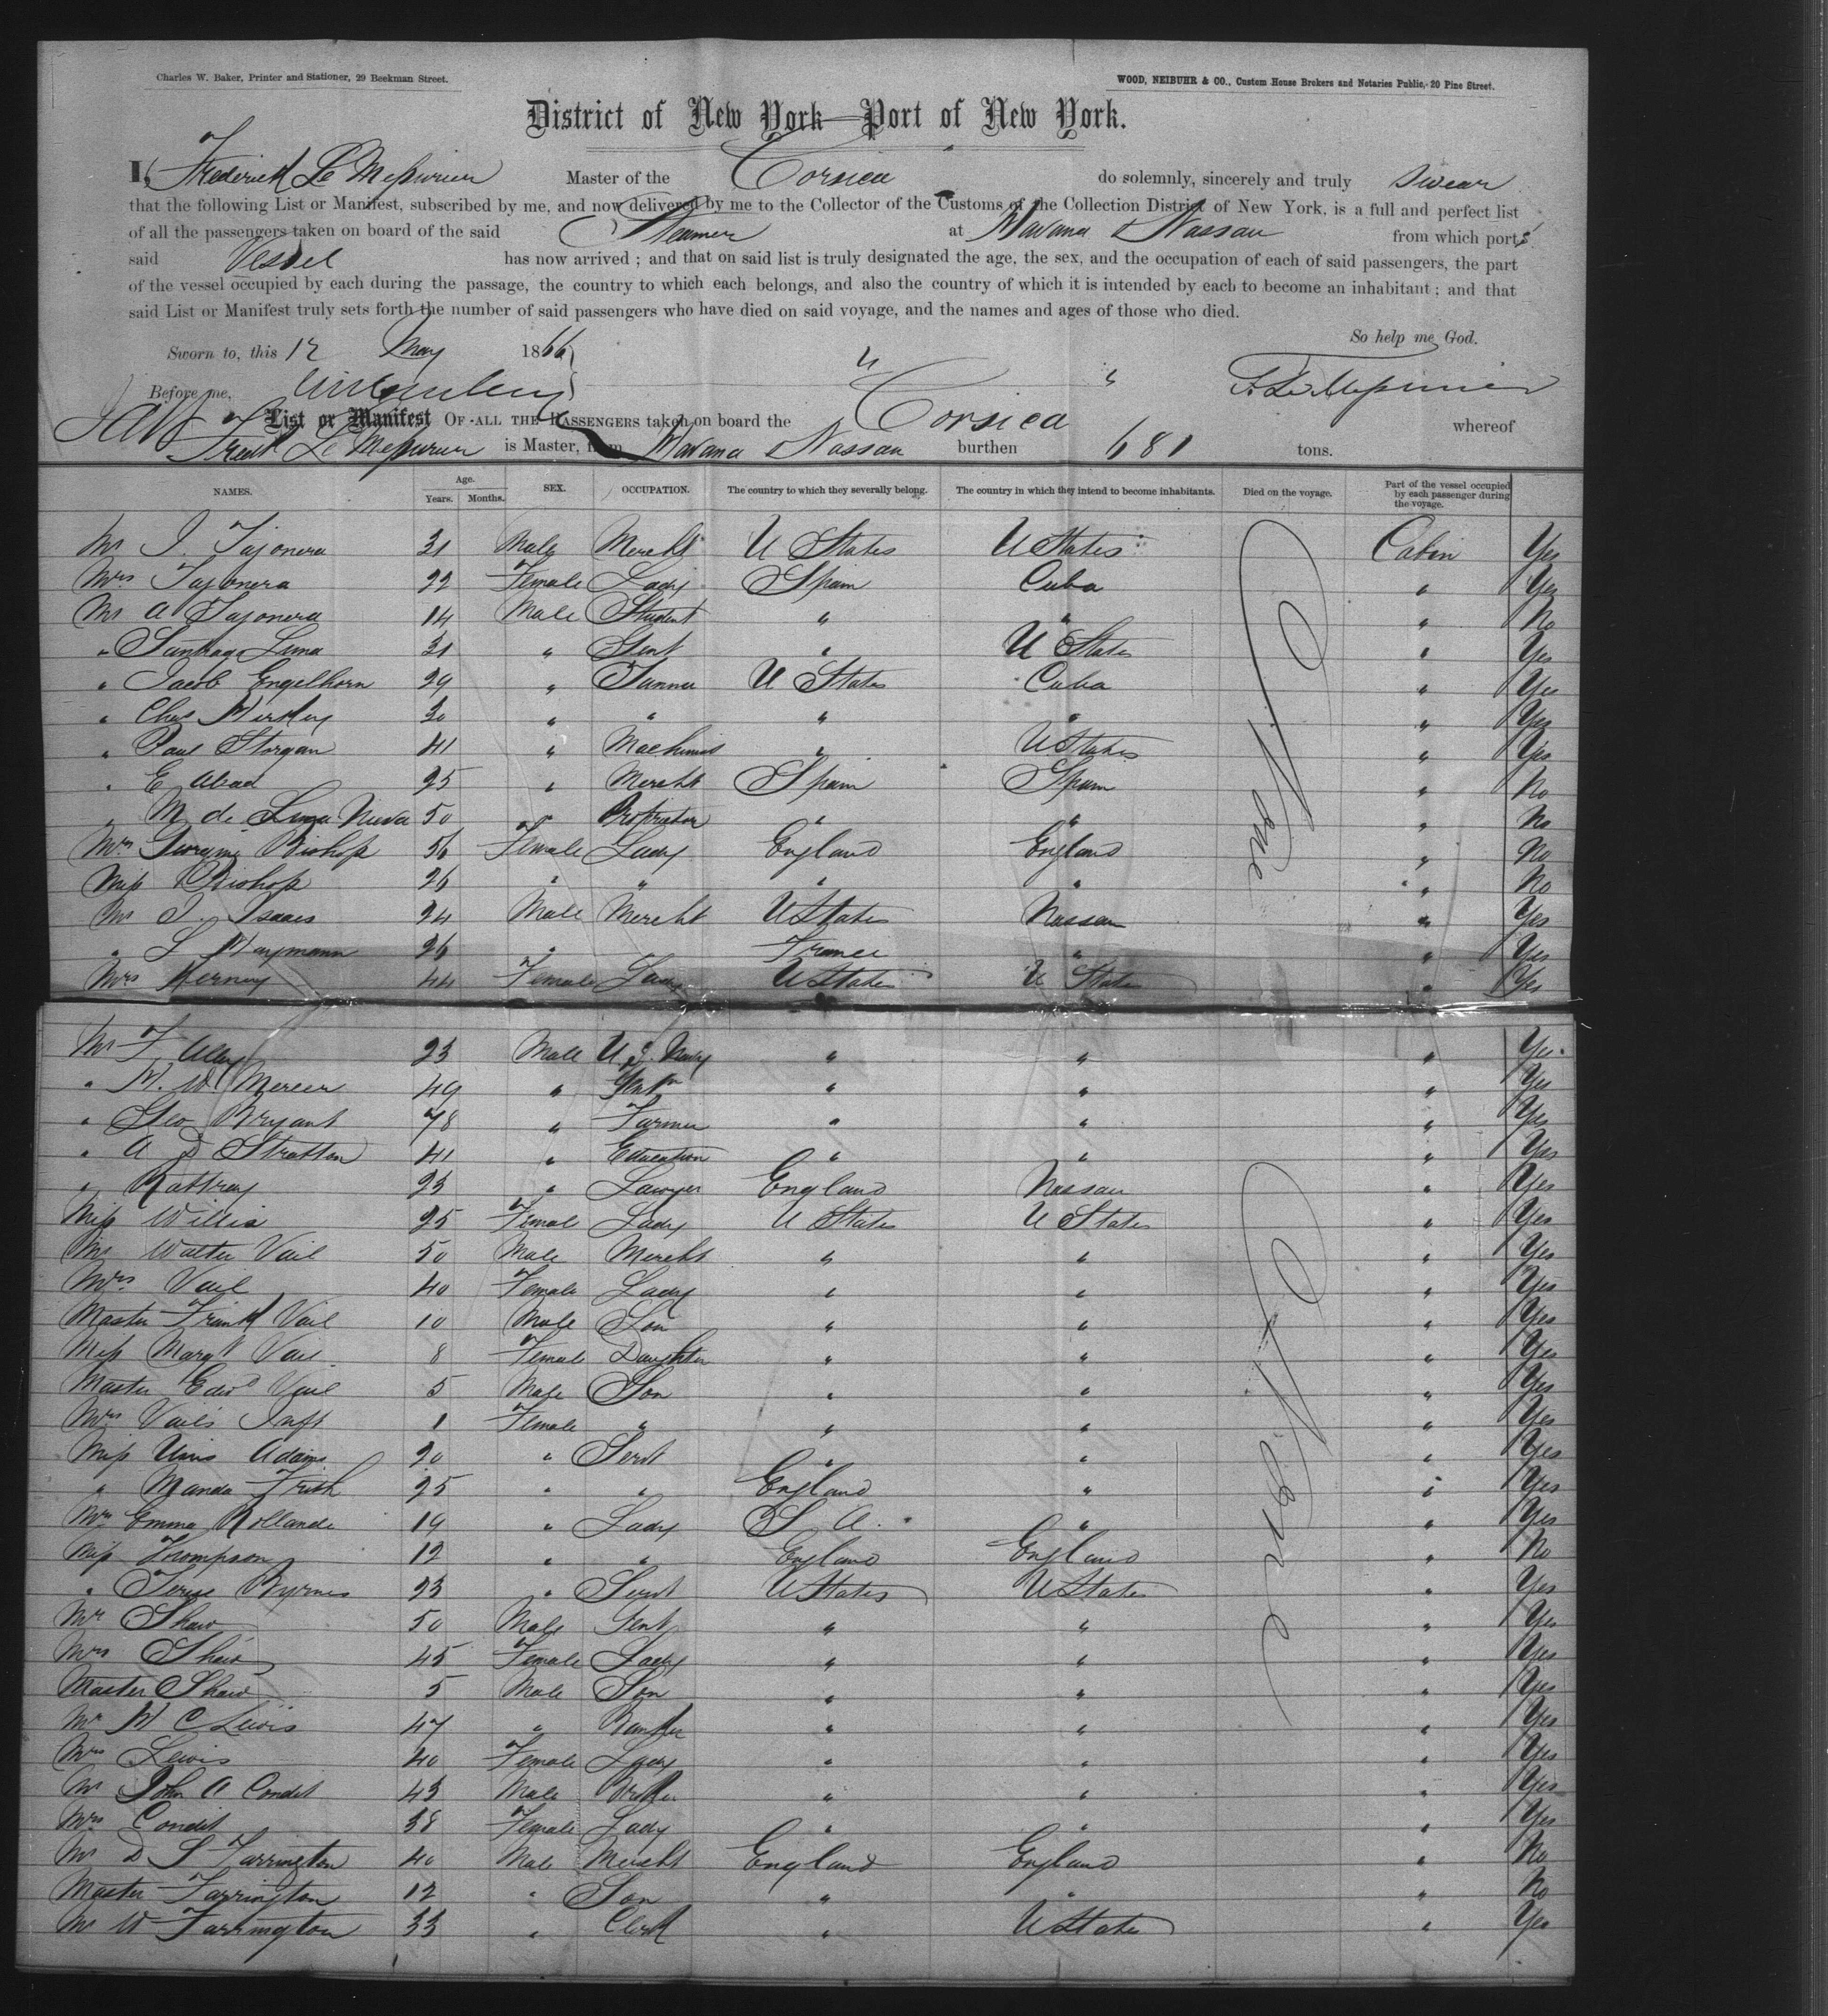 Charles W. Baker, Printer and Stationer, 29 Beekman Street.
WOOD, NEIBUHR & CO., Custom House Brokers and Notaries Public, 20 Pine Street.
District of New York—Port of New York.
I, Frederick Le Mesurier Master of the Corsica do solemnly, sincerely and truly swear
that the following List or Manifest, subscribed by me, and now delivered by me to the Collector of the Customs of the Collection District of New York, is a full and perfect list
of all the passengers taken on board of the said Steamer at Havana & Nassau from which ports
said Vessel has now arrived ; and that on said list is truly designated the age, the sex, and the occupation of each of said passengers, the part
of the vessel occupied by each during the passage, the country to which each belongs, and also the country of which it is intended by each to become an inhabitant ; and that
said List or Manifest truly sets forth the number of said passengers who have died on said voyage, and the names and ages of those who died.
So help me God.
Sworn to, this 12 May 1866
Before me, F. Le Mesurier
List or Manifest OF ALL THE PASSENGERS taken on board the Corsica whereof
Fredk Le Mesurier is Master, from Havana & Nassau burthen 681 tons.
NAMES. Age. Years. Months. SEX. OCCUPATION. The country to which they severally belong. The country in which they intend to become inhabitants. Died on the voyage. Part of the vessel occupied by each passenger during the voyage.
Mr J. Tajonera 31 Male Mercht U States U States Cabin Yes
Mrs Tajonera 22 Female Lady Spain Cuba " Yes
Mr A Tajonera 14 Male Student " " " No
" Santiago Lima 31 " Gent " U States " Yes
" Jacob Engelhorn 29 " Tanner U States Cuba " Yes
" Chas 30 " " " " " Yes
" Paul Storgan 41 " Machinist " U States " Yes
" E Abad 25 " Mercht Spain Spain " No
" M de 50 " Proprietor " " " No
Mrs Bishop 56 Female Lady England England " No
Miss Bishop 26 " " " " " No
Mr J. Isaacs 24 Male Mercht U States Nassau " Yes
" S Haymann 26 " France " " Yes
Mrs Kerney 44 Female Lady U States U States " Yes
None
Mr F Alley 23 Male U S. Navy " " " Yes
" H. W Mercer 49 " Gentn " " " Yes
" Geo Bryant 78 " Farmer " " " Yes
" A D Stratton 41 " Education " " " Yes
" Rattray 23 " Lawyer England Nassau " Yes
Miss Willis 25 Female Lady U States U States " Yes
Mr Walter Vail 50 Male Mercht " " " Yes
Mrs Vail 40 Female Lady " " " Yes
Master Frank Vail 10 Male Son " " " Yes
Miss Margt Vail 8 Female Daughter " " " Yes
Master Edwd Vail 5 Male Son " " " Yes
Mrs Vail's Inft 1 Female " " " " Yes
Miss Adams 20 " Servt " " " Yes
" Manda Frith 25 " " England " " Yes
Mrs Emma Rollande 19 " Lady S A. " " Yes
Miss Thompson 12 " " England England " No
" Byrnes 23 " Servt U States U States " Yes
Mr Shaw 50 Male Gent " " " Yes
Mrs Shaw 45 Female Lady " " " Yes
Master Shaw 5 Male Son " " " Yes
Mr H C Lewis 47 " Banker " " " Yes
Mrs Lewis 40 Female Lady " " " Yes
Mr John A Condit 43 Male Broker " " " Yes
Mrs Condit 38 Female Lady " " " Yes
Mr D S Farrington 40 Male Mercht England England " No
Master Farrington 12 " Son " " " No
Mr W Farrington 33 " Clerk " U States " Yes
None